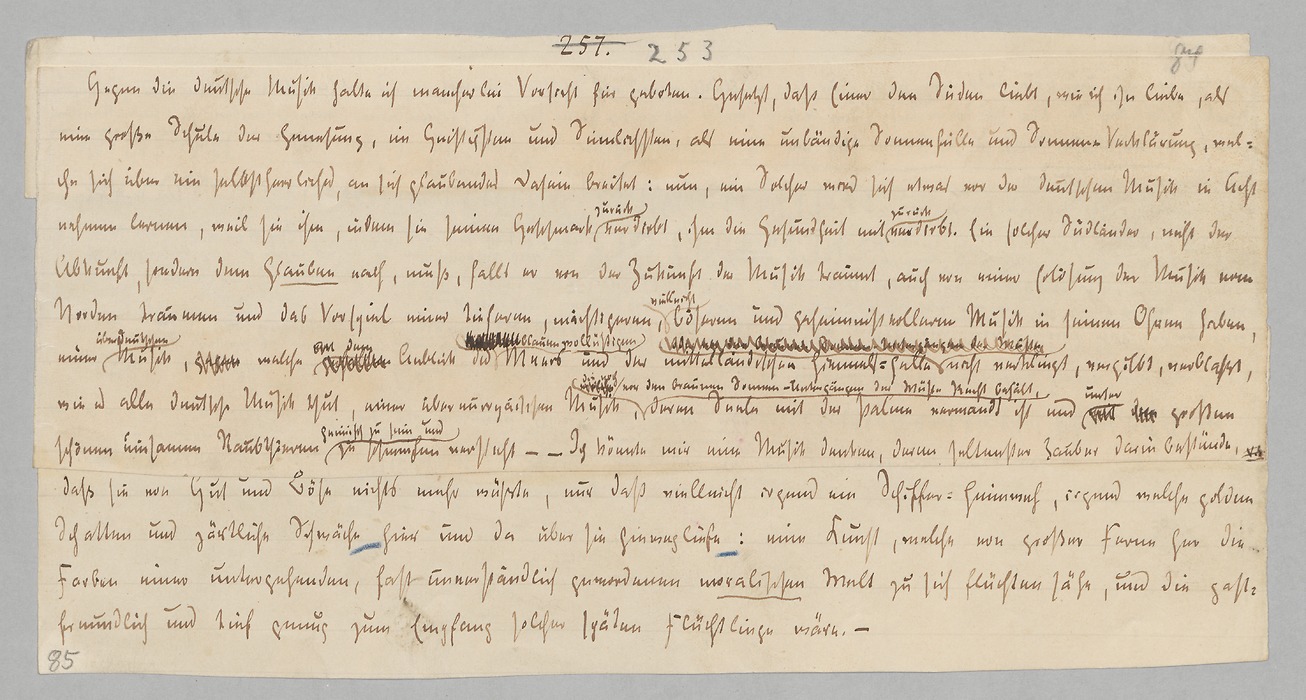 257. 253
84
Gegen die deutsche Musik halte ich mancherlei Vorsicht für geboten. Gesetzt, daß Einer den Süden liebt, wie ich ihn liebe, als
eine große Schule der Genesung, im Geistigsten und Sinnlichsten, als eine unbändige Sonnenfülle und Sonnen-Verklärung, wel=
che sich über ein selbstherrliches, an sich glaubendes Dasein breitet: nun, ein Solcher wird sich etwas vor der deutschen Musik in Acht
nehmen lernen, weil sie ihm, indem sie seinen Geschmack zurück verdirbt, ihm die Gesundheit mit zurück verdirbt. Ein solcher Südländer, nicht der
Abkunft, sondern dem Glauben nach, muß, falls er von der Zukunft der Musik träumt, auch von einer Erlösung der Musik vom
Norden träumen und das Vorspiel einer tieferen, mächtigeren, vielleicht böseren und geheimnißvolleren Musik in seinen Ohren haben,
einer überdeutschen Musik, welche vor dem Anblick des blauen wollüstigen Meers und der mittelländischen Himmels-Helle nicht verklingt, vergilbt, verblaßt,
wie es alle deutsche Musik thut, einer übereuropäischen Musik, die noch vor den braunen Sonnen-Untergängen der Wüste Recht behält, deren Seele mit der Palme verwandt ist und unter großen
schönen einsamen Raubthieren heimisch zu sein und zu schweifen versteht — — Ich könnte mir eine Musik denken, deren seltenster Zauber darin bestünde,
daß sie von Gut und Böse nichts mehr wüßte, nur daß vielleicht irgend ein Schiffer-Heimweh, irgend welche goldne
Schatten und zärtliche Schwäche hier und da über sie hinwegliefe: eine Kunst, welche von großer Ferne her die
Farben einer untergehenden, fast unverständlich gewordenen moralischen Welt zu sich flüchten sähe, und die gast=
freundlich und tief genug zum Empfang solcher späten Flüchtlinge wäre. —
85